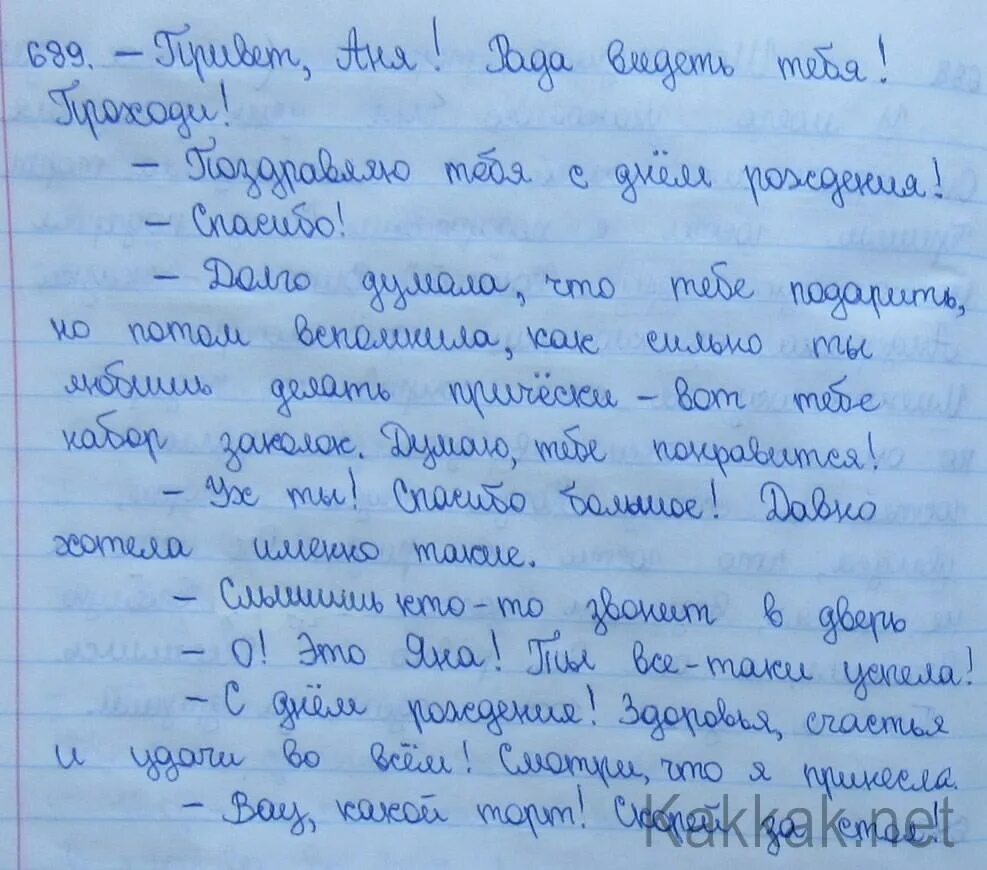 689. – Привет, Аня! Рада видеть тебя!
Проходи!
– Поздравляю тебя с днём рождения!
– Спасибо!
– Долго думала, что тебе подарить,
но потом вспомнила, как сильно ты
любишь делать причёски – вот тебе
набор заколок. Думаю, тебе понравится!
– Ух ты! Спасибо большое! Давно
хотела именно такие.
– Слышишь кто-то звонит в дверь
– О! Это Яна! Ты все-таки успела!
– С днём рождения! Здоровья, счастья
и удачи во всём! Смотри, что я принесла.
– Вау, какой торт! Скорей за стол!
Kakkak.net